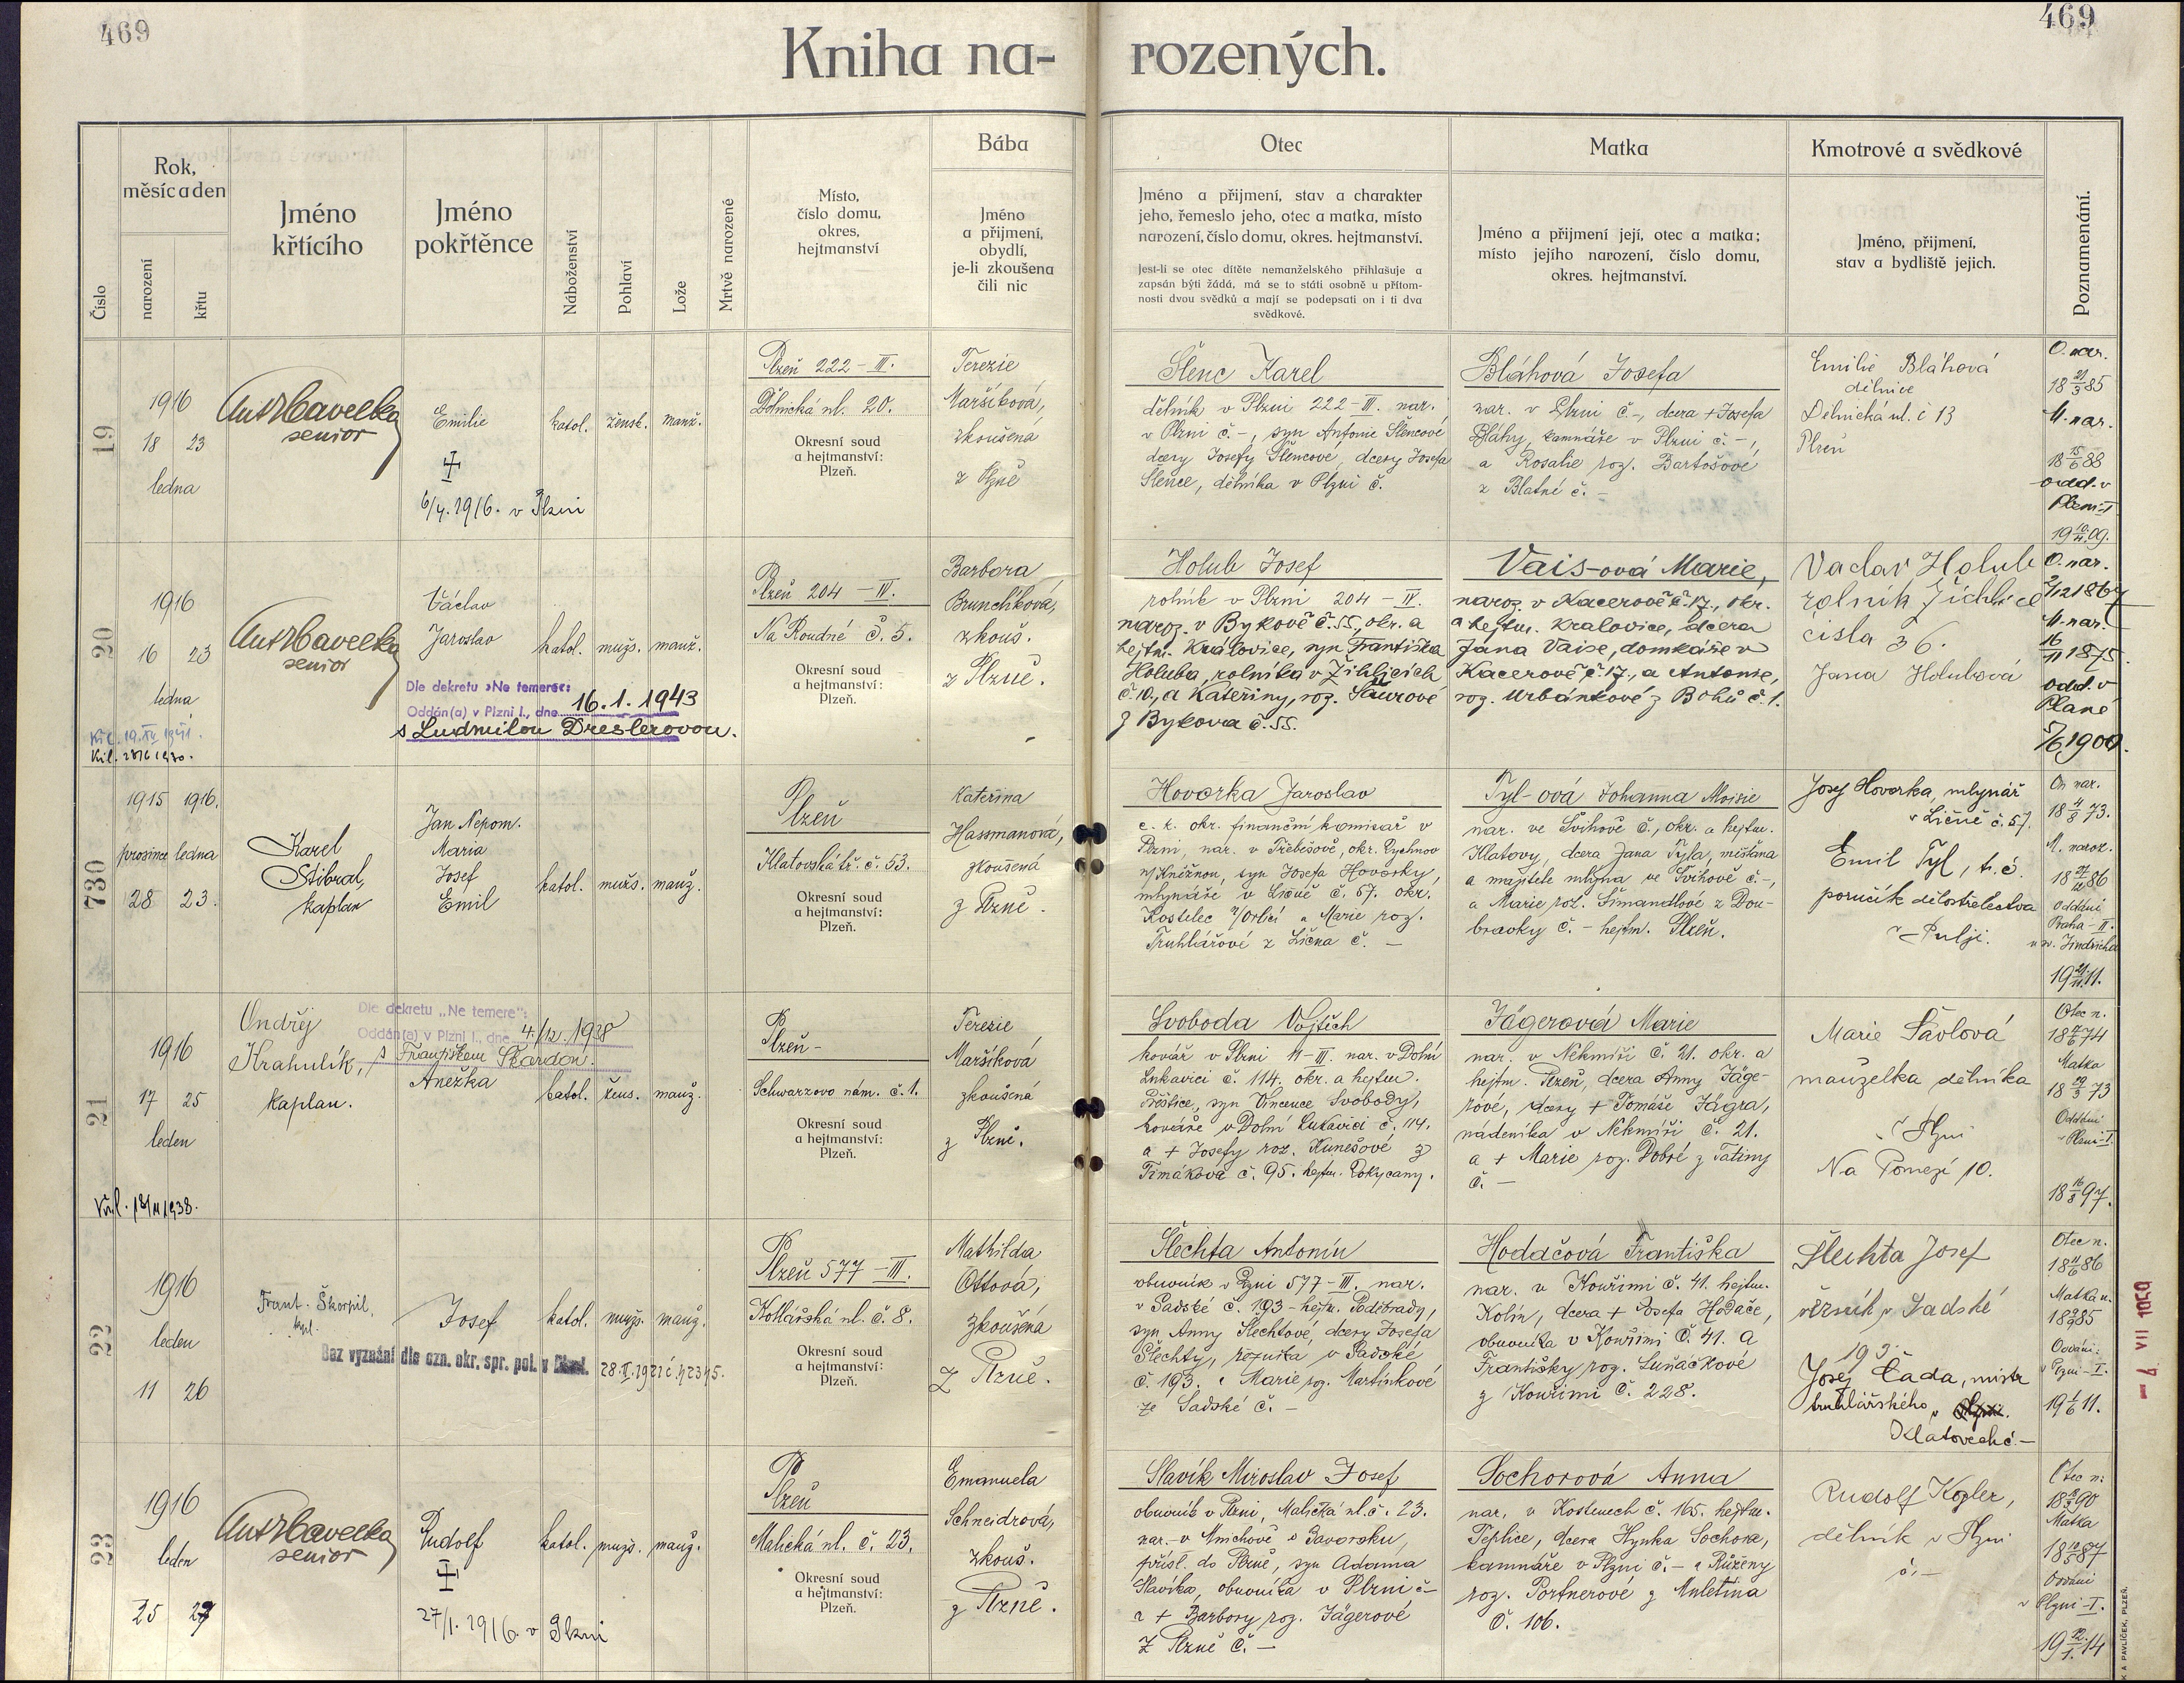 469
469
Kniha na- rozených.
Číslo
Rok, měsíc a den
narození
křtu
Jméno křtícího
Jméno pokřtěnce
Náboženství
Pohlaví
Lože
Mrtvě narozené
Místo, číslo domu, okres, hejtmanství
Bába
Jméno a přijmení, obydlí, je-li zkoušena čili nic
Otec
Jméno a přijmení, stav a charakter
jeho, řemeslo jeho, otec a matka, místo
narození, číslo domu, okres. hejtmanství.
Jest-li se otec dítěte nemanželského přihlašuje a
zapsán býti žádá, má se to státi osobně u přítom-
nosti dvou svědků a mají se podepsati on i ti dva
svědkové.
Matka
Jméno a přijmení její, otec a matka;
místo jejího narození, číslo domu,
okres. hejtmanství.
Kmotrové a svědkové
Jméno, přijmení,
stav a bydliště jejich.
Poznamenání.
19
1916
18 23
ledna
Ant Havelka
senior
Emilie
6/4. 1916. v Plzni
katol. žensk. manž.
Plzeň 222 - III.
Dělnická ul. 20.
Okresní soud
a hejtmanství:
Plzeň.
Terezie
Maršíková,
zkoušená
z Plzně
Šlenc Karel
dělník v Plzni 222-III. nar.
v Plzni č. -, syn Antonie Šlencové
dcery Josefy Šlencové, dcery Josefa
Šlence, dělníka v Plzni č.
Bláhová Josefa
nar. v Plzni č. -, dcera + Josefa
Bláhy, kamnáře v Plzni č. -,
a Rosalie roz. Bartošové
z Blatné č. -
Emilie Bláhová
dělnice
Dělnická ul. č 13
Plzeň
O. nar.
18 21/3 85
M. nar.
18 15/6 88
odd. v
Plzni-I
20
1916
16 23
ledna
Ant Havelka
senior
Václav
Jaroslav
katol. mužs. manž.
Dle dekretu »Ne temere«:
Oddán(a) v Plzni I., dne 16. 1. 1943
s Ludmilou Dreslerovou.
Plzeň 204 - IV.
Na Roudné č. 5.
Okresní soud
a hejtmanství:
Plzeň.
Barbora
Brunclíková,
zkouš.
z Plzně.
Holub Josef
rolník v Plzni 204 - IV.
naroz. v Bykově č. 55, okr. a
hejtm. Kralovice, syn Františka
Holuba, rolníka v Žihlicích
č. 10., a Kateřiny, roz. Saurové
z Bykova č. 55.
Vais-ová Marie,
naroz. v Kacerově č. 17., okr.
a hejtm. Kralovice, dcera
Jana Vaise, domkáře v
Kacerově č. 17., a Antonie,
roz. Urbánkové z Bohů č. 1.
Vaclav Holub
rolnik Žichlice
čisla 36.
Jana Holubová
O. nar.
M. nar.
16/11 1875.
odd. v
Plané
5/6 1900.
730
1915 1916.
prosince ledna
28 23.
Karel
Stibral,
kaplan
Jan Nepom.
Maria
Josef
Emil
katol. mužs. manž.
Plzeň
Klatovská tř. č. 53.
Okresní soud
a hejtmanství:
Plzeň.
Kateřina
Hassmanová,
zkoušená
z Plzně.
Hovorka Jaroslav
c. k. okr. finanční komisař v
Plzni, nar. v Třebešově, okr. Rychnov
n/Kněžnou, syn Josefa Hovorky,
mlynáře v Ličně č. 57. okr.
Kostelec n/Orlicí a Marie roz.
Truhlářové z Lična č. -
Tyl-ová Johanna Moisie
nar. ve Švihově č., okr. a hejtm.
Klatovy, dcera Jana Tyla, měšťana
a majitele mlýna ve Švihově č. -,
a Marie roz. Šimandlové z Dou-
bravky č. - hejtm. Plzeň.
Josef Hovorka, mlynář
v Ličně č. 57.
Emil Tyl, t. č.
poručík dělostřelectva
v Pulji.
On nar.
18 4/3 73.
M. naroz.
Oddáni
Praha - II.
u sv. Jindřicha
21
1916
17 25
leden
Ondřej
Krahulík,
kaplan.
Dle dekretu „Ne temere":
Oddán(a) v Plzni I., dne 4./12. 1938
s Františkem Škardou.
Anežka
katol. žens. manž.
Plzeň-
Schwarzovo nám. č. 1.
Okresní soud
a hejtmanství:
Plzeň.
Terezie
Maršíková
zkoušená
z Plzně.
Svoboda Vojtěch
kovář v Plzni 11-III. nar. v Dolní
Lukavici č. 114. okr. a hejtm.
Přeštice, syn Vincence Svobody,
kováře v Dolní Lukavici č. 114.
a + Josefy roz. Kunešové z
Timákova č. 95. hejtm. Rokycany.
Jägerová Marie
nar. v Nekmíři č. 21. okr. a
hejtm. Plzeň, dcera Anny Jäge-
rové, dcery + Tomáše Jägra,
nádeníka v Nekmíři č. 21.
a + Marie roz. Dobré z Tatiny
č. -
Marie Pávlová
manželka dělníka
v Plzni
Na Pomezí 10.
Otec n.
Matka
Oddáni
v Plzni-I.
18 16/8 97.
22
1916
leden
11 26
Frant. Škorpil,
kapl.
Josef
katol. mužs. manž.
Bez vyznání dle ozn. okr. spr. pol. v Plzni.
Plzeň 577 - III.
Kollárská ul. č. 8.
Okresní soud
a hejtmanství:
Plzeň.
Mathilda
Ottová,
zkoušená
z Plzně.
Šlechta Antonín
obuvník v Plzni 577-III. nar.
v Sadské č. 193 - hejtm. Poděbrady,
syn Anny Šlechtové, dcery Josefa
Šlechty, řezníka v Sadské
č. 193. a Marie roz. Martínkové
ze Sadské č. -
Hodačová Františka
nar. v Kouřimi č. 41. hejtm.
Kolín, dcera + Josefa Hodače,
obuvníka v Kouřimi č. 41. a
Františky roz. Luňáčkové
z Kouřimi č. 228.
Šlechta Josef
řezník v Sadské
193.
Josef Čada, mistr
truhlářského v
Klatovech č. -
Otec n.
Matka n.
Oddáni:
v Plzni-I.
19 1/6 11.
- 4 VII 1950
23
1916
leden
25 27
Ant Havelka
senior
Rudolf
27/1. 1916. v Plzni
katol. mužs. manž.
Plzeň
Malická ul. č. 23.
Okresní soud
a hejtmanství:
Plzeň.
Emanuela
Schneidrová,
zkouš.
z Plzně.
Slavík Miroslav Josef
obuvník v Plzni, Malická ul. č. 23.
nar. v Mnichově v Bavorsku,
přísl. do Plzně, syn Adama
Slavíka, obuvníka v Plzni č -
a + Barbory roz. Jägerové
z Plzně č. -
Sochorová Anna
nar. v Kostenech č. 165. hejtm.
Teplice, dcera Hynka Sochora,
kamnáře v Plzni č. - a Růženy
roz. Portnerové z Muletina
č. 106.
Rudolf Kogler,
dělník v Plzni
č. -
Otec n.
Matka
Oddáni
v Plzni-I.